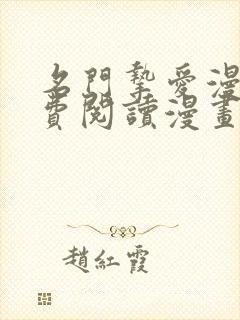 名門摯愛漫
費閱讀漫畫
趙紅霞